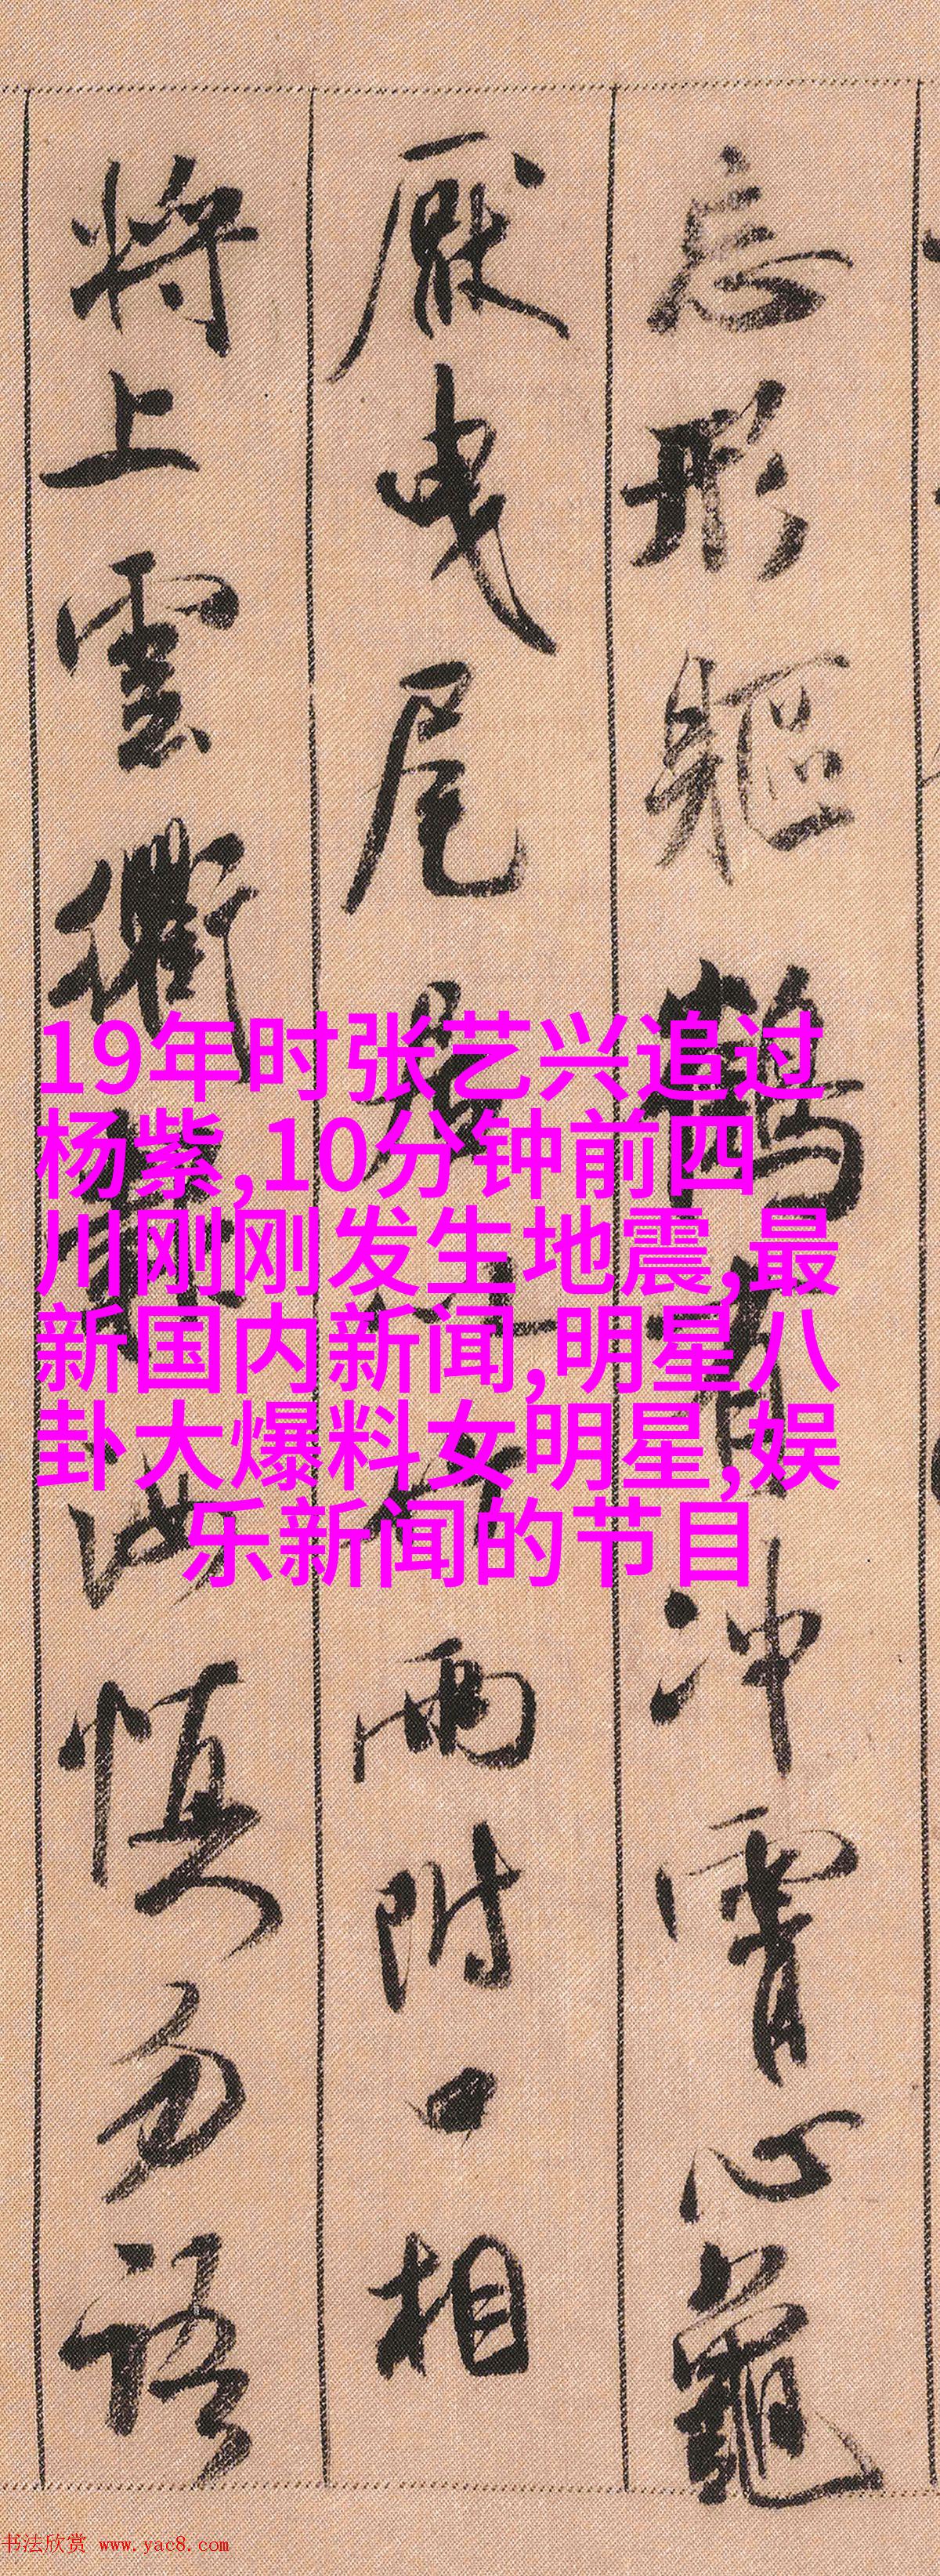 忘形軀鶴有沖霄心龜
厭曳尾居以竹兩附口相
將上雲衢報汝慎勿語
19年时张艺兴追过
杨紫,10分钟前四
川刚刚发生地震,最
新国内新闻,明星八
卦大爆料女明星,娱
乐新闻的节目
书法欣赏 www.yac8.com